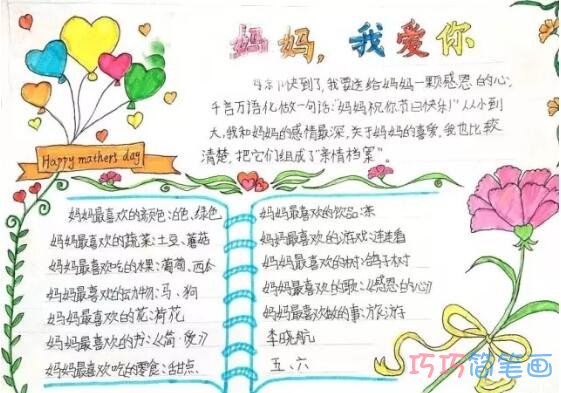 妈妈,我爱你
快到了,我要送给妈妈一颗感恩的心,
千言万语化做一句话:"妈妈祝你节日快乐!"从小到
大,我和妈妈的感情最深,关于妈妈的喜爱,我也比较
清楚,把它们组成了"亲情档案"。
Happy mathers day
妈妈最喜欢的颜色:白色、绿色
妈妈最喜欢的蔬菜:土豆、蘑菇
妈妈最喜欢吃的水果:葡萄、西瓜
妈妈最喜欢的动物:马、狗
妈妈最喜欢的花:荷花
妈妈最喜欢的书:《简·爱》
妈妈最喜欢吃的零食:甜点
妈妈最喜欢的饮品:茶
妈妈最喜欢的游戏:连连看
妈妈最喜欢的树:鸽子树
妈妈最喜欢的歌:《感恩的心》
妈妈最喜欢做的事:旅游
李晓航
五、六
巧巧简笔画